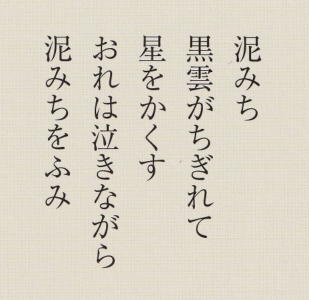 泥みち
黒雲がちぎれて
星をかくす
おれは泣きながら
泥みちをふみ